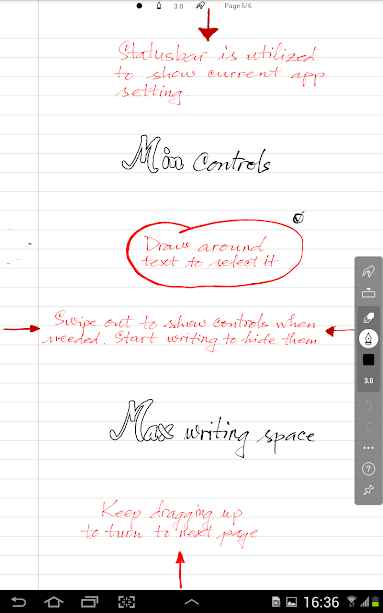 3.0 Page 5/6
Statusbar is utilized
to show current app
setting
Min Controls
Draw around
text to select it
Swipe out to show controls when
needed. Start writing to hide them
3.0
Max writing space
Keep dragging up
to turn to next page
16:36